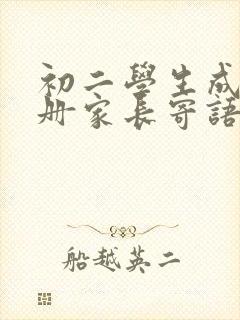 初二學生成
册家長寄語
船越英二